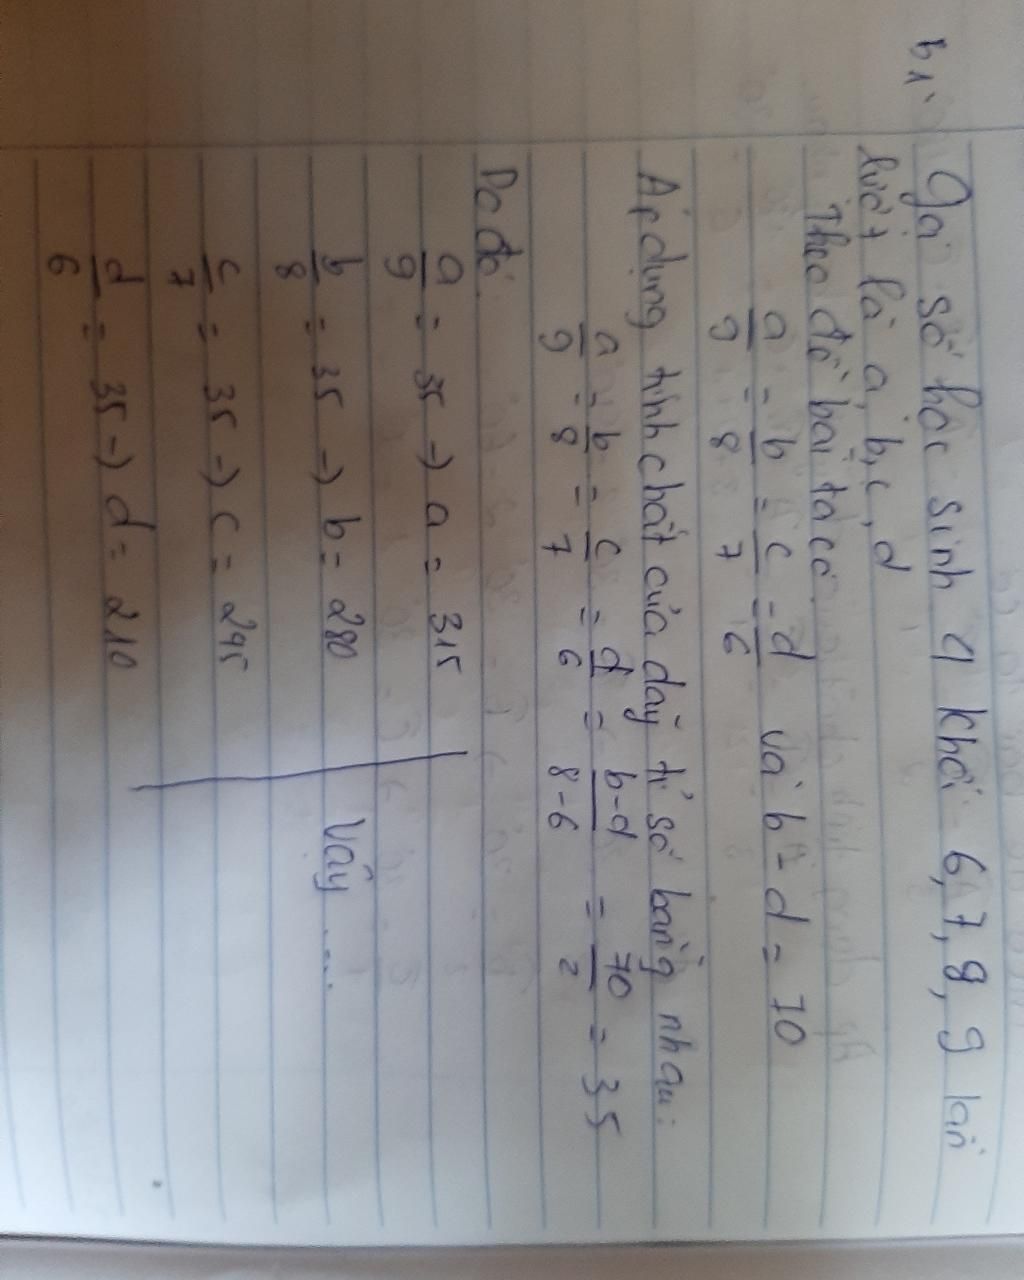 B1.
Gọi số học sinh 4 khối 6, 7, 8, 9 lần
lượt là a, b, c, d
Theo đề bài ta có
a/9 = b/8 = c/7 = d/6 và b - d = 70
Áp dụng tính chất của dãy tỉ số bằng nhau:
a/9 = b/8 = c/7 = d/6 = b-d/8-6 = 70/2 = 35
Do đó:
a/9 = 35 -> a = 315
b/8 = 35 -> b = 280
Vây ....
c/7 = 35 -> c = 245
d/6 = 35 -> d = 210